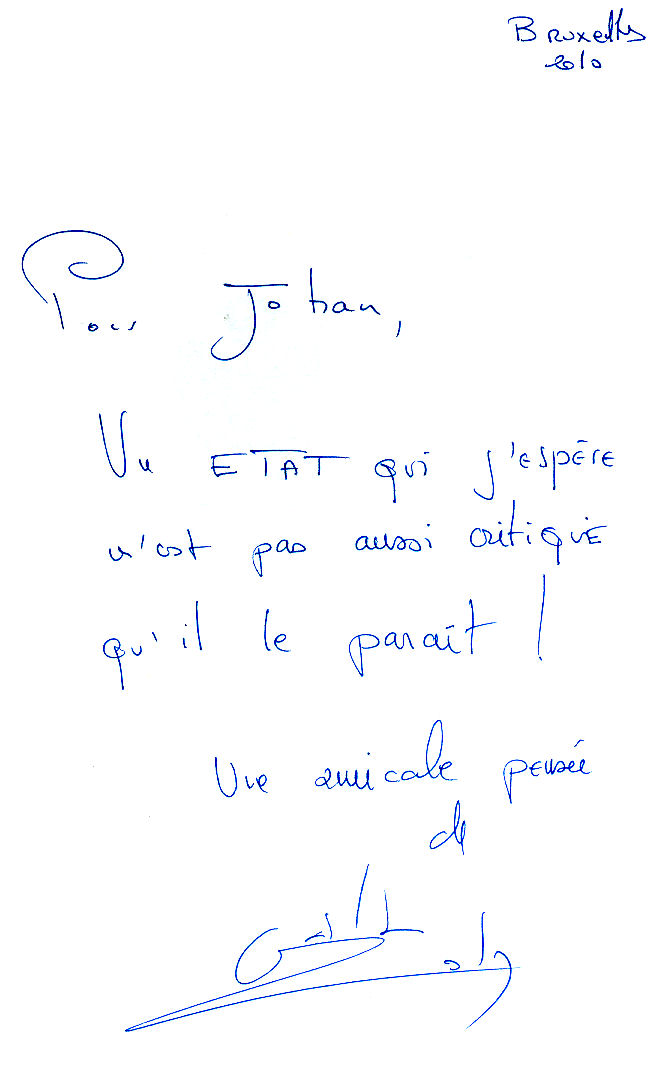 Bruxelles
2010
Pour Johan,
Un ETAT qui j'espère
n'est pas aussi critique
qu'il le paraît !
Une amicale pensée
de